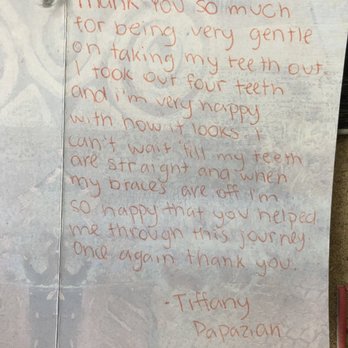 Thank you so much
for being very gentle
on taking my teeth out.
I took out four teeth
and i'm very happy
with how it looks. I
can't wait 'till my teeth
are straight and when
my braces are off I'm
so happy that you helped
me through this journey.
Once again thank you.
-Tiffany
Papazian